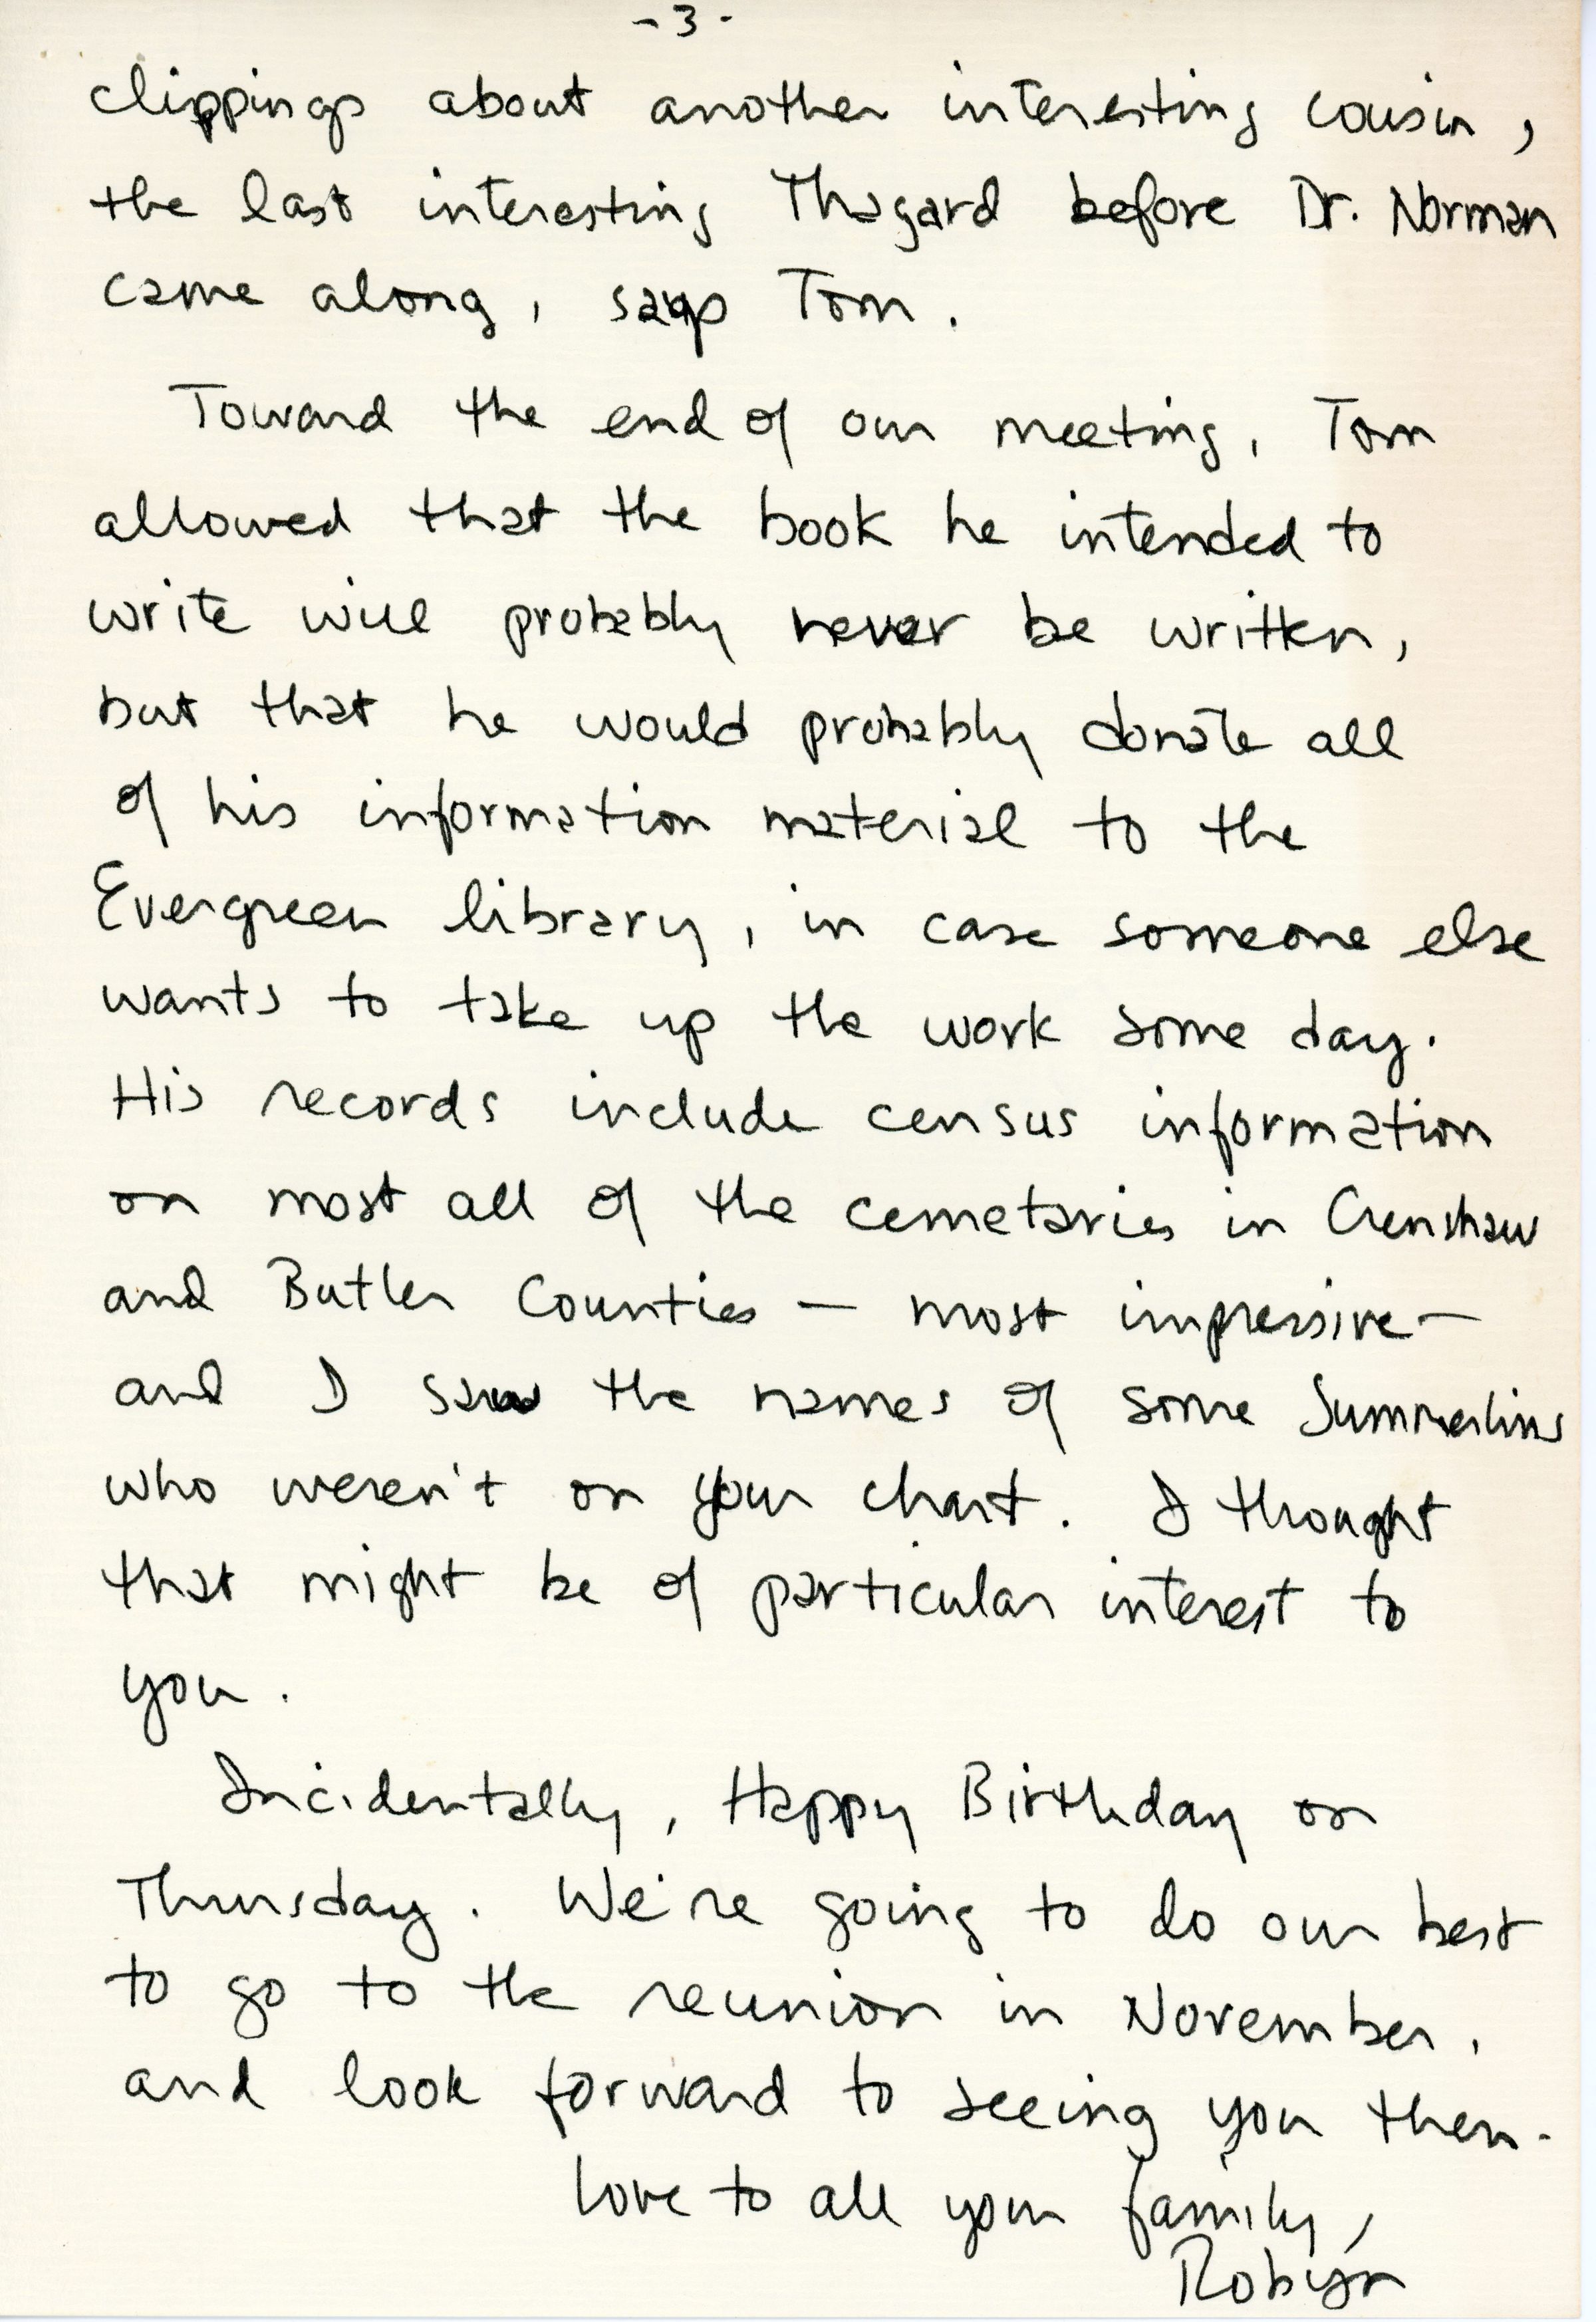 -3-
clippings about another interesting cousin,
the last interesting Thagard before Dr. Norman
came along, says Tom.
Toward the end of our meeting, Tom
allowed that the book he intended to
write will probably never be written,
but that he would probably donate all
of his information material to the
Evergreen library, in case someone else
wants to take up the work some day.
His records include census information
on most all of the cemetaries in Crenshaw
and Butler Counties — most impressive —
and I saw the names of some Summerlins
who weren't on your chart. I thought
that might be of particular interest to
you.
Incidentally, Happy Birthday on
Thursday. We're going to do our best
to go to the reunion in November,
and look forward to seeing you then.
Love to all your family,
Robyn